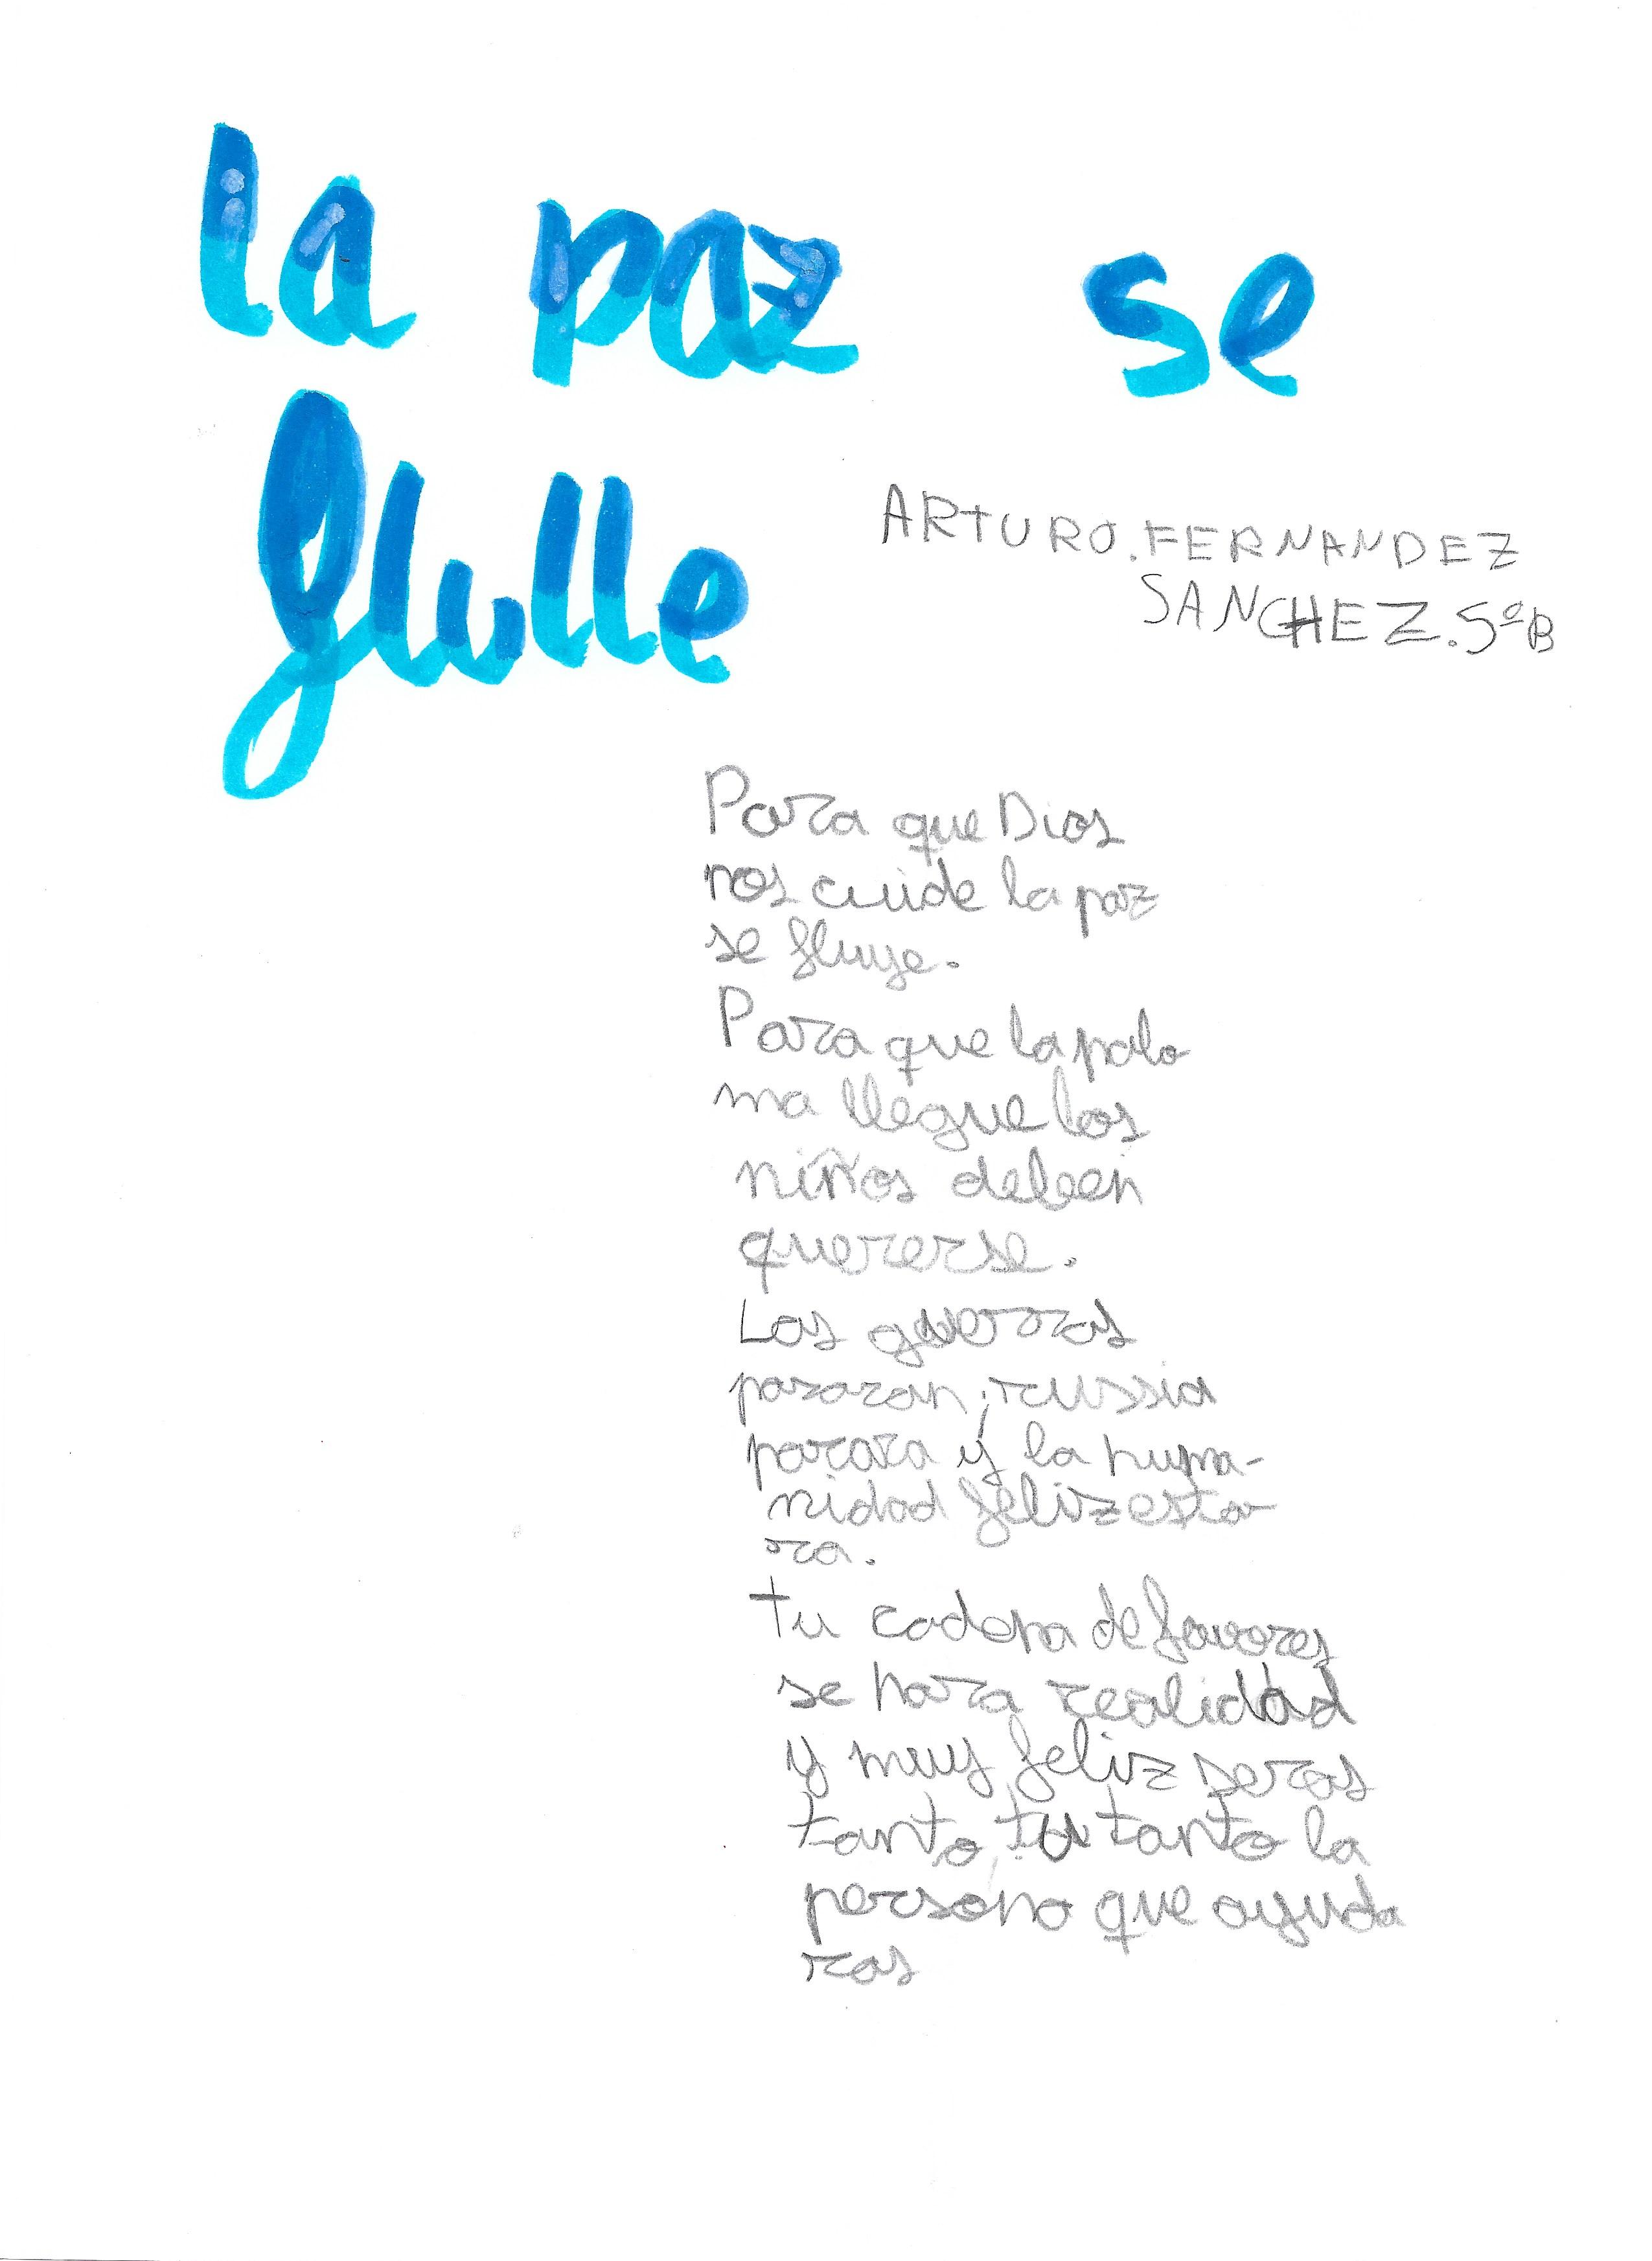 la paz se
flulle
ARTURO.FERNANDEZ
SANCHEZ.5ºB
Para que Dios
nos cuide la paz
se fluye.
Para que la palo
ma llegue los
niños debeen
quererse.
Las guerras
pararan, russia
parara y la huma-
nidad feliz esta
ra.
tu cadena de favores
se hara realidad
y muy feliz seras
tanto, tu tanto la
persona que ayuda
ras